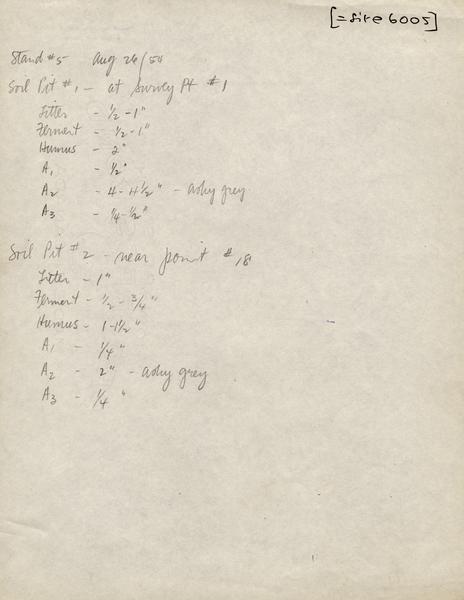 [= site 6005]
Stand #5 Aug 26/54
Soil Pit #1 - at Survey Pt #1
Litter - 1/2 - 1"
Ferment - 1/2 - 1"
Humus - 2"
A1 - 1/2"
A2 - 4 - 4 1/2" - ashy grey
A3 - 1/4 - 1/2"
Soil Pit #2 - near point #18
Litter - 1"
Ferment - 1/2 - 3/4"
Humus - 1 - 1 1/2"
A1 - 1/4"
A2 - 2" - ashy grey
A3 - 1/4"